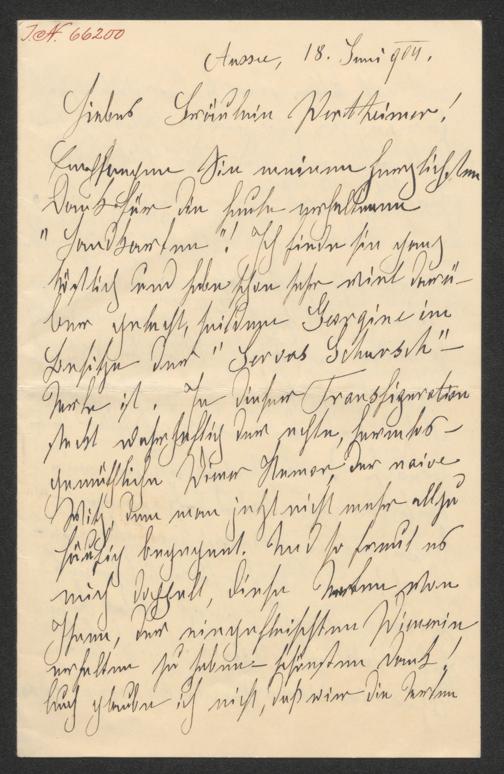 I.N. 66200
Aussee, 18. Juni 904.
Liebes Fräulein Wertheimer!
Empfangen Sie meinen herzlichsten
Dank für die heute erhaltenen
"Landkarten"! Ich finde sie ganz
köstlich und habe schon sehr viel darü-
ber gelacht, seitdem Georgine im
Besitze der "Servas Schursch"-
Karte ist. In dieser Transfiguration
steckt wahrhaftig der echte, harmlos-
gemüthliche Wiener Humor der naive
Witz, dem man jetzt nicht mehr allzu
häufig begegnet. Und so freut es
mich doppelt, diese Karten von
Ihnen, der eingefleischten Wienerin
erhalten zu haben – schönsten Dank!
glaube ich nicht, daß wir die Karten